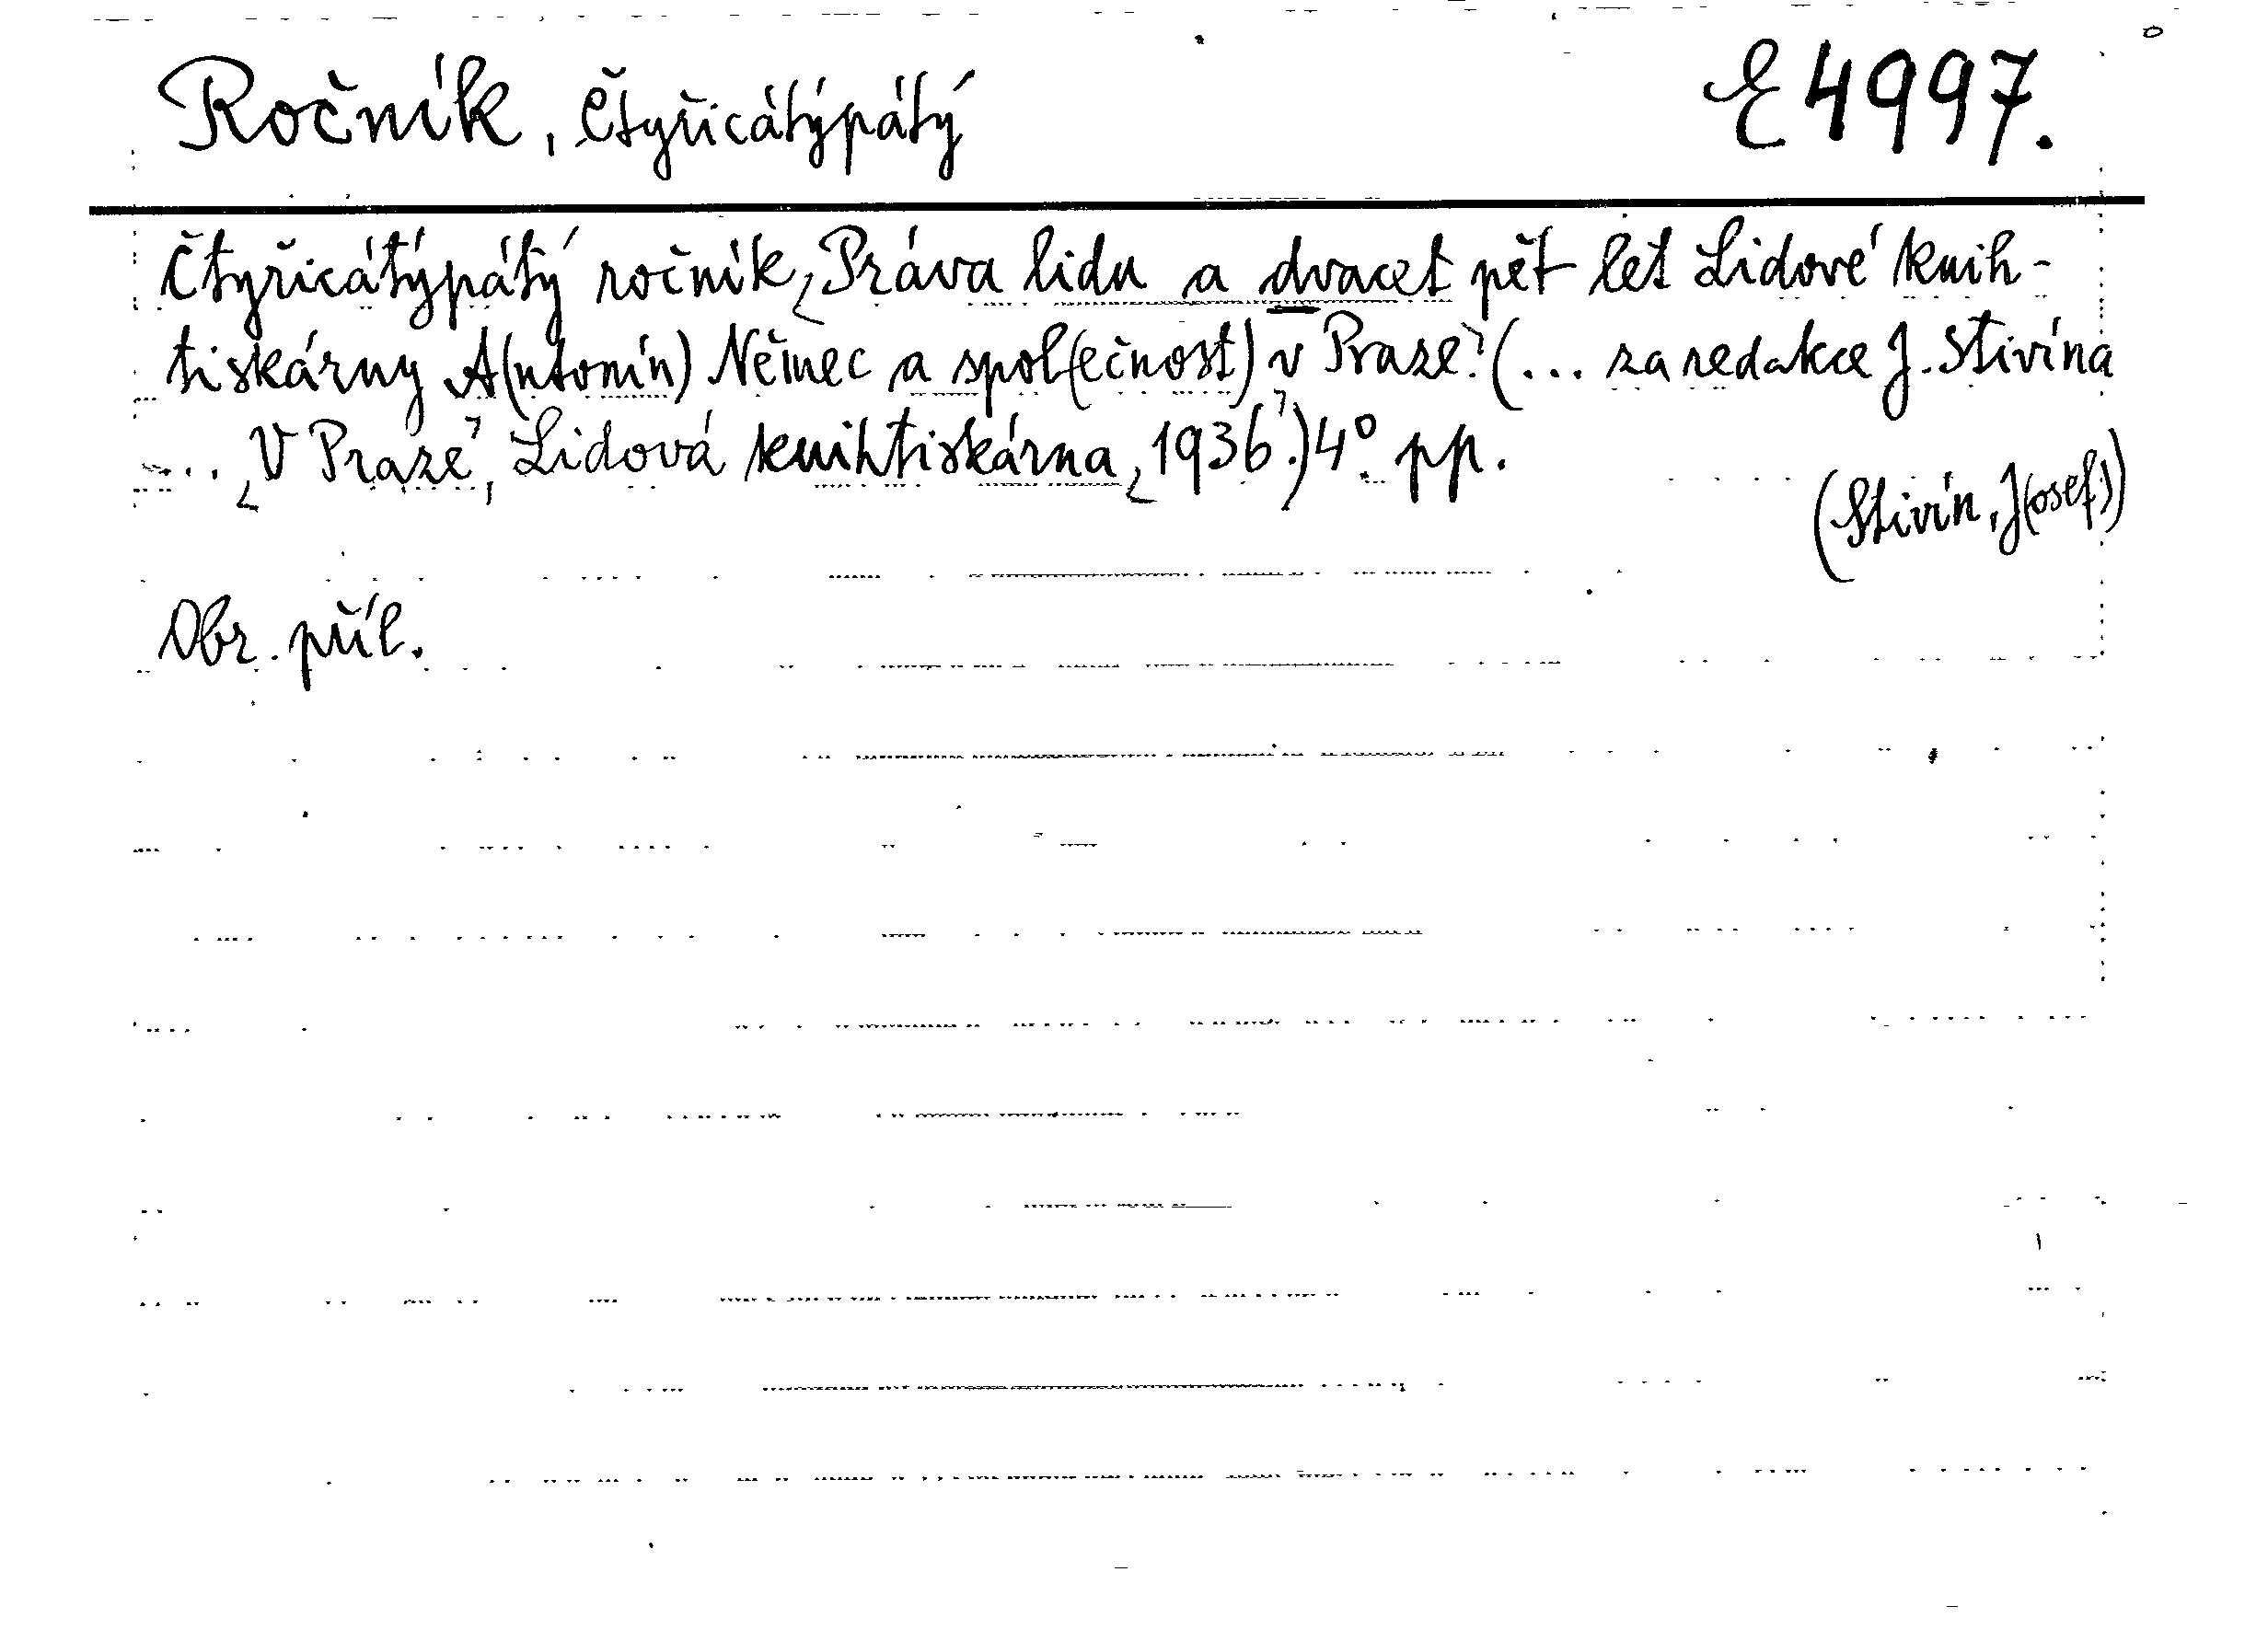 Ročník, Čtyřicátýpátý E 4997.
Čtyřicátýpátý ročník „Práva lidu a dvacet pět let Lidové knih-
tiskárny A(ntonín) Němec a spol(ečnost) v Praze". (... za redakce J. Stivína
... [V Praze], Lidová knihtiskárna, [1936].) 4°. pp.
(Stivín, J(osef))
Obr. příl.